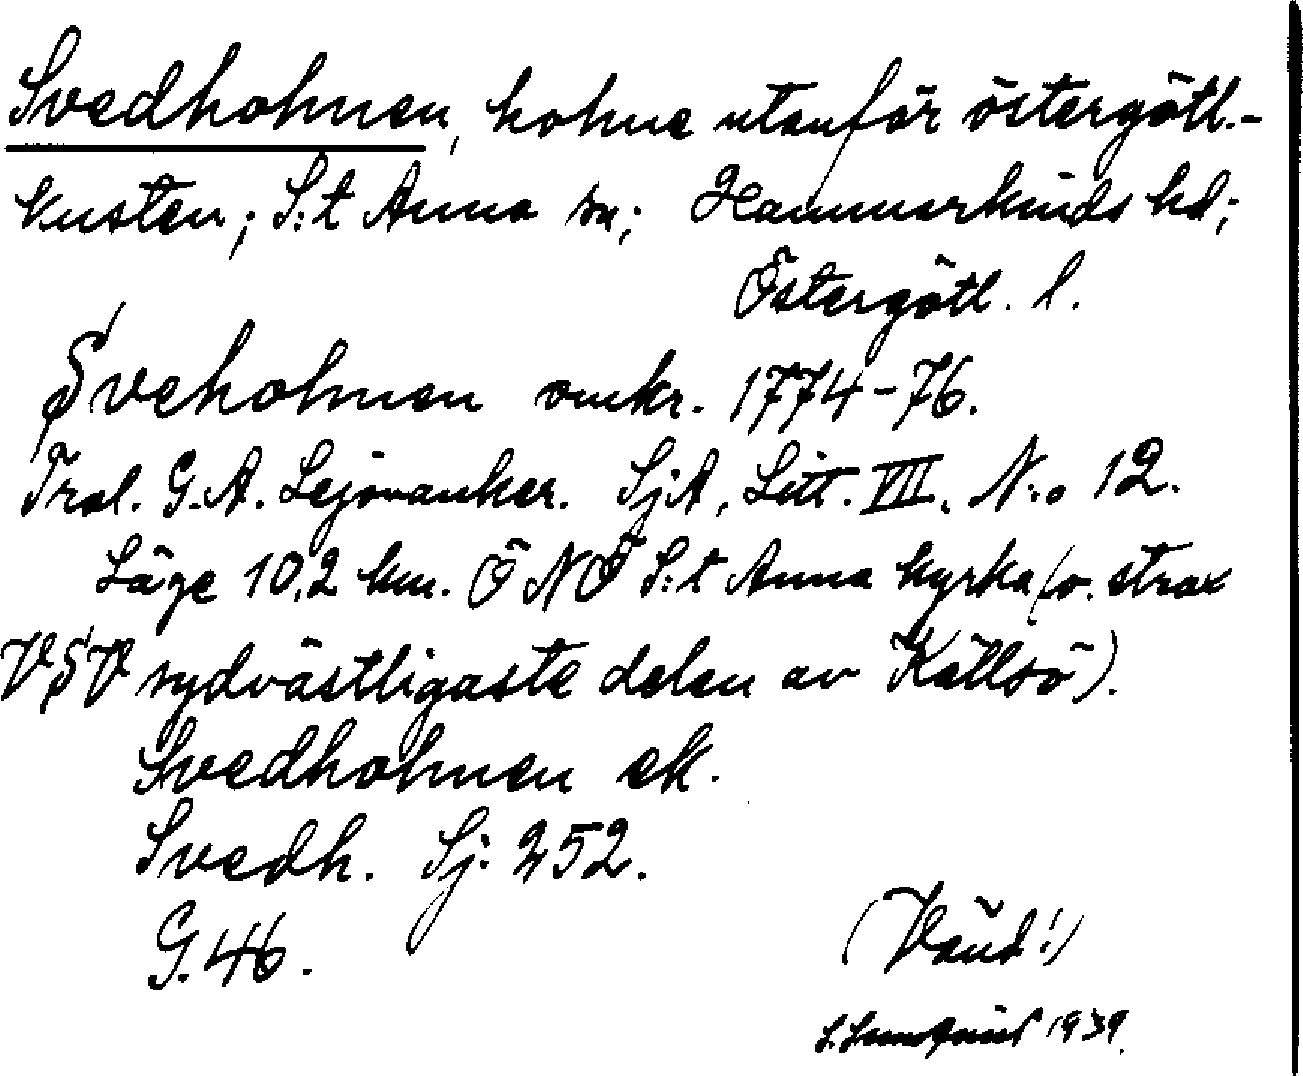 Svedholmen, holme utanför östergötl.-
kusten; S:t Anna sn; Hammarkinds hd;
Östergötl. l.
Sveholmen omkr. 1774-76.
Tral. G.A. Lejonanker. SjA, Litt. VII, N:o 12.
Läge 10,2 km. ÖNÖ S:t Anna kyrka (o. strax
VSV sydvästligaste delen av Källsö).
Svedholmen ek.
Svedh. Sj. 252.
G. 46.
(Vänd!)
1939.